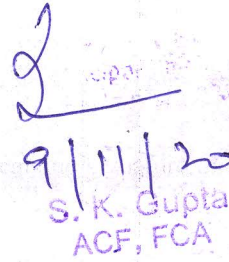 9/11/20
S. K. Gupta
ACF, FCA